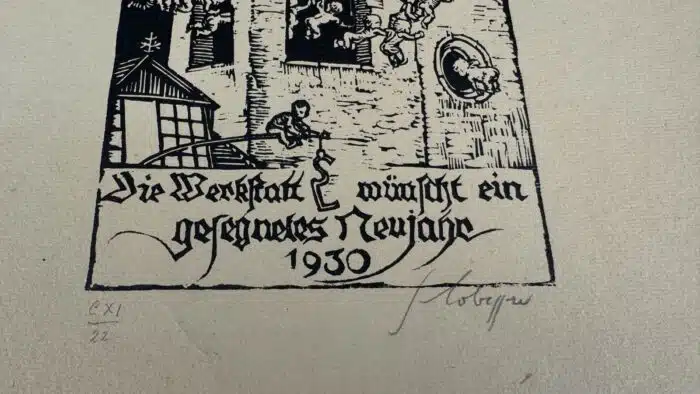 Die Werkstatt wünscht ein
gesegnetes Neujahr
1930
C XI
22